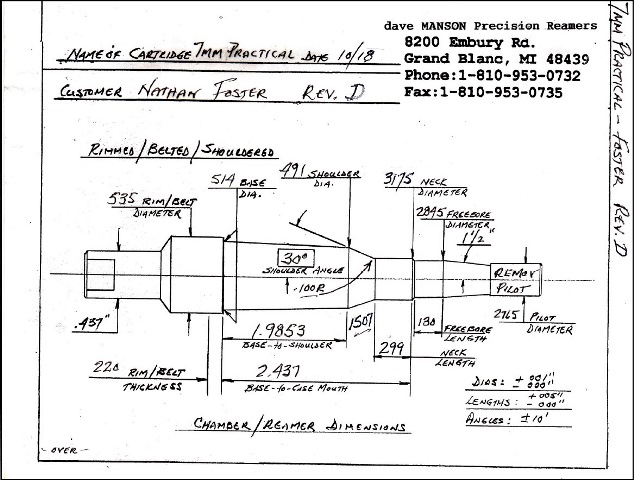 dave MANSON Precision Reamers
8200 Embury Rd.
Grand Blanc, MI 48439
Phone:1-810-953-0732
Fax:1-810-953-0735
NAME OF CARTRIDGE 7MM PRACTICAL DATE 10/18
CUSTOMER NATHAN FOSTER REV. D
7MM PRACTICAL - FOSTER REV. D
RIMMED/BELTED/SHOULDERED
535 RIM/BELT
DIAMETER
514 BASE
DIA.
491 SHOULDER
DIA.
3175 NECK
DIAMETER
2845 FREEBORE
DIAMETER
1 1/2°
30°
SHOULDER ANGLE
.100R
REMOV
PILOT
.437"
1.9853
BASE-to-SHOULDER
1507
130 FREEBORE
LENGTH
2765 PILOT
DIAMETER
220 RIM/BELT
THICKNESS
2.437
BASE-to-CASE MOUTH
299 NECK
LENGTH
DIAS: +.001"
-.000"
LENGTHS: +.005"
-.000"
ANGLES: ±10'
CHAMBER/REAMER DIMENSIONS
- OVER -